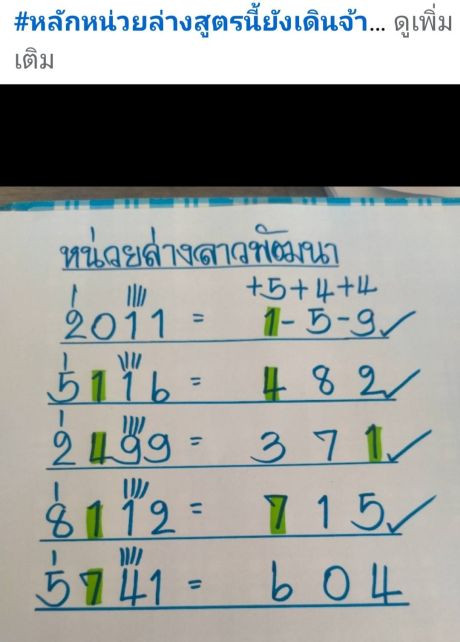 #หลักหน่วยล่างสูตรนี้ยังเดินจ้า... ดูเพิ่ม
เติม
หน่วยล่างลาวพัฒนา
+5+4+4
2011 = 1-5-9✓
5116 = 4 8 2✓
2499 = 3 7 1✓
8112 = 7 1 5✓
5741 = 6 0 4